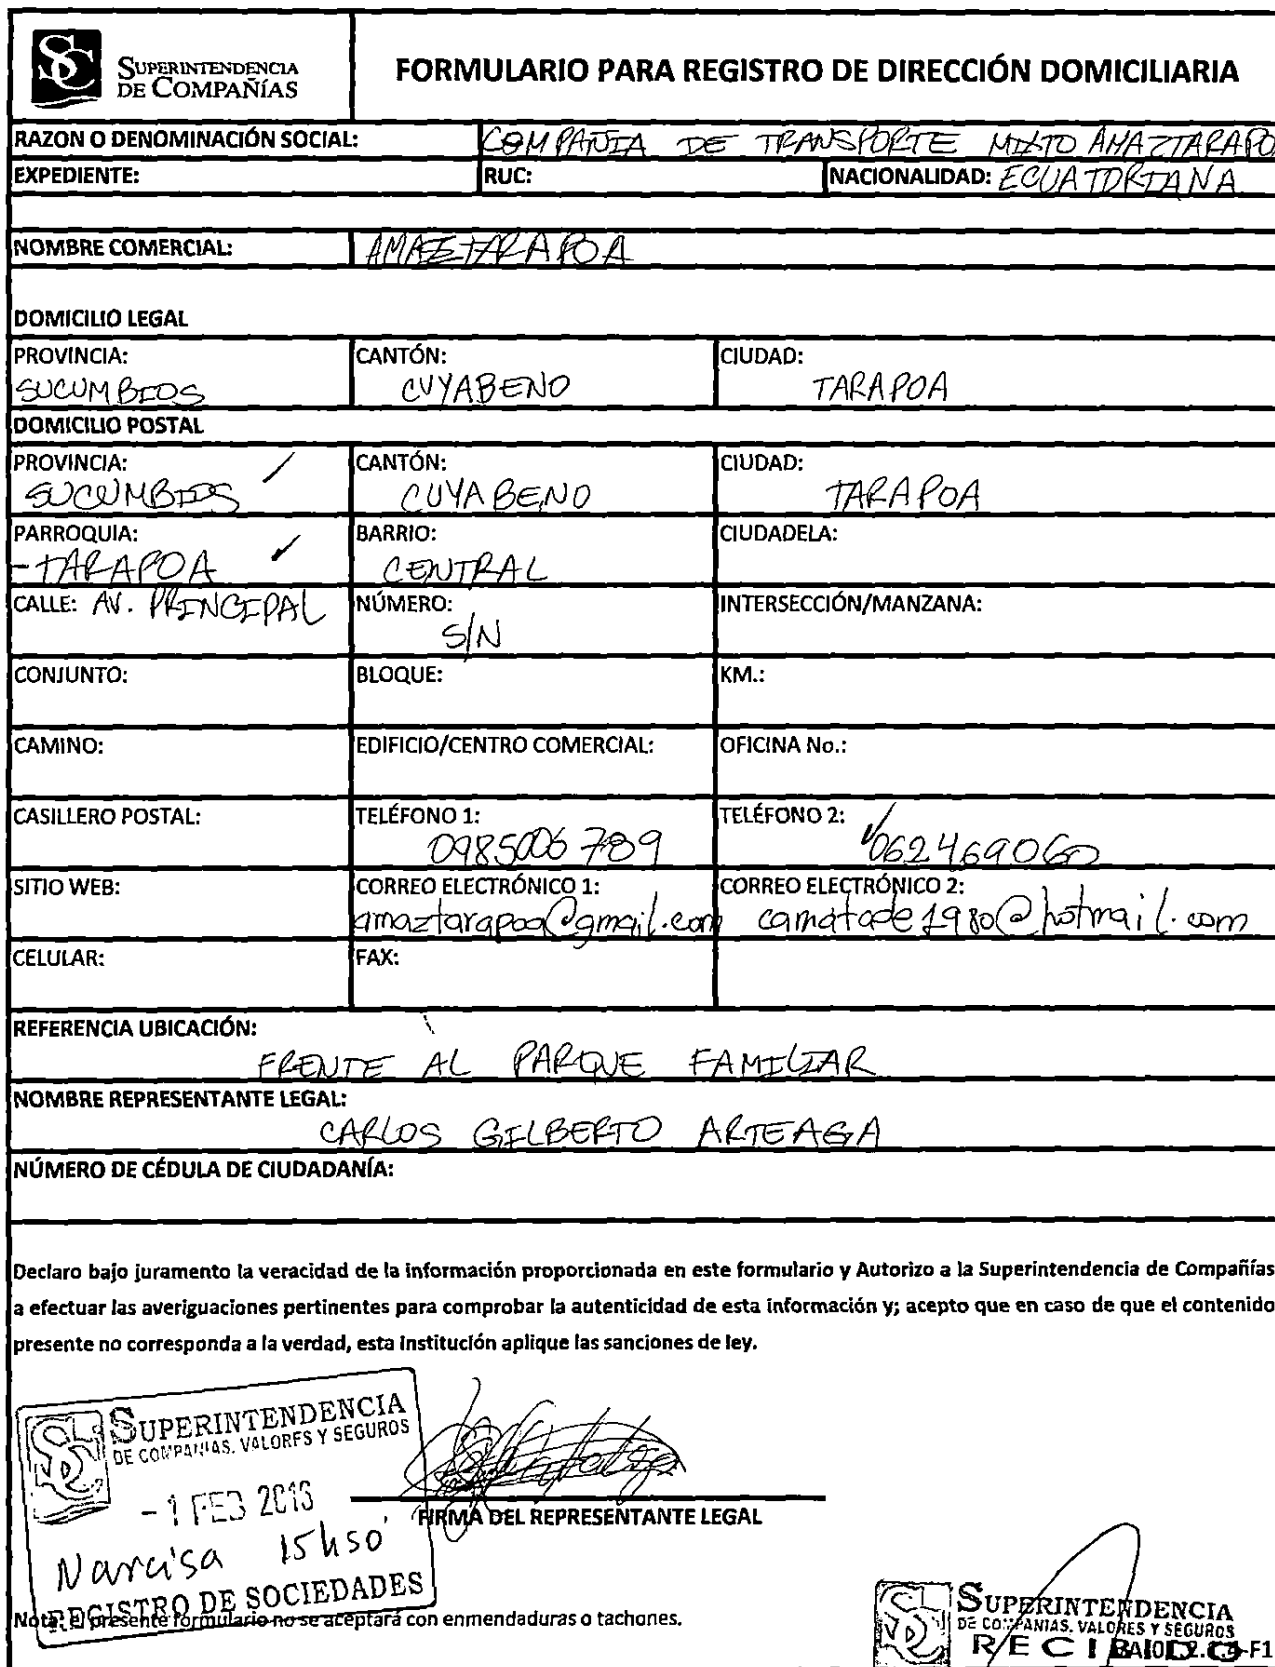 SUPERINTENDENCIA
DE COMPAÑÍAS
FORMULARIO PARA REGISTRO DE DIRECCIÓN DOMICILIARIA
RAZON O DENOMINACIÓN SOCIAL: COMPAÑIA DE TRANSPORTE MIXTO AMAZTARAPOA
EXPEDIENTE: RUC: NACIONALIDAD: ECUATORIANA
NOMBRE COMERCIAL: AMAZTARAPOA
DOMICILIO LEGAL
PROVINCIA: CANTÓN: CIUDAD:
SUCUMBIOS CUYABENO TARAPOA
DOMICILIO POSTAL
PROVINCIA: CANTÓN: CIUDAD:
SUCUMBIOS CUYABENO TARAPOA
PARROQUIA: BARRIO: CIUDADELA:
-TARAPOA CENTRAL
CALLE: AV. PRINCIPAL NÚMERO: INTERSECCIÓN/MANZANA:
S/N
CONJUNTO: BLOQUE: KM.:
CAMINO: EDIFICIO/CENTRO COMERCIAL: OFICINA No.:
CASILLERO POSTAL: TELÉFONO 1: TELÉFONO 2:
0985006789 062469060
SITIO WEB: CORREO ELECTRÓNICO 1: CORREO ELECTRÓNICO 2:
amaztarapoa@gmail.com camatade1980@hotmail.com
CELULAR: FAX:
REFERENCIA UBICACIÓN:
FRENTE AL PARQUE FAMILIAR
NOMBRE REPRESENTANTE LEGAL:
CARLOS GILBERTO ARTEAGA
NÚMERO DE CÉDULA DE CIUDADANÍA:
Declaro bajo juramento la veracidad de la información proporcionada en este formulario y Autorizo a la Superintendencia de Compañías
a efectuar las averiguaciones pertinentes para comprobar la autenticidad de esta información y; acepto que en caso de que el contenido
presente no corresponda a la verdad, esta institución aplique las sanciones de ley.
SUPERINTENDENCIA
DE COMPAÑIAS, VALORES Y SEGUROS
- 1 FEB 2016
Narcisa 15h50
REGISTRO DE SOCIEDADES
FIRMA DEL REPRESENTANTE LEGAL
Nota: el presente formulario no se aceptará con enmendaduras o tachones.
SUPERINTENDENCIA
DE COMPAÑIAS, VALORES Y SEGUROS
RECIBIDO